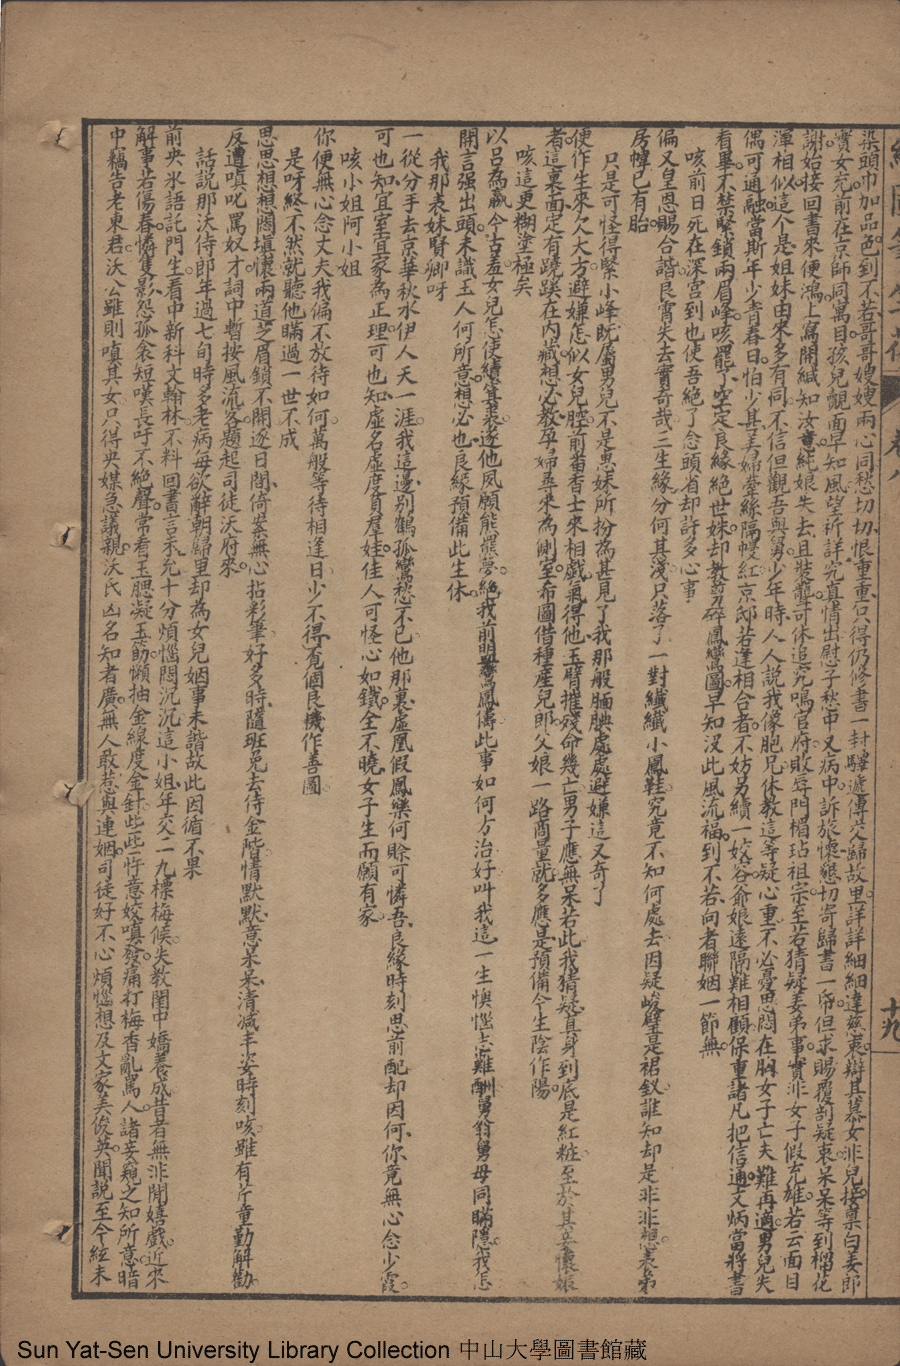 十九
染頭巾加品色到不若哥哥嫂嫂兩心同愁切切恨重重只得仍修書一封驛遞傳交歸故里詳詳細細達慈衷辯其慕女非兒接稟白姜郎
實女充前在京師同萬目孩兒覿面早知風望祈詳究真情出慰子愁中又病中訴旅懷懇切寄歸書一帋但求賜覆剖疑衷呆呆等到榴花
謝始接回書來便鴻上寫開緘知汝意純娘失去且裝聾可休追究鳴官府敗辱門楣玷祖宗至若猜疑姜弟事實非女子假充雄若云面目
渾相似這个是姐妹由來多有同不信但觀吾與舅少年時人人說我像胞兄休教這等疑心重不必憂思悶在胸女子亡夫難再適男兒失
偶可通融當斯年少青春日怕少其家婦牽絲隔幔紅京邸若逢相合者不妨另續一姣容爺娘遠隔難相顧保重諸凡把信通文炳當將書
看畢不禁緊鎖兩眉峰咳罷了空定良緣絕世姝却教剪碎鳳鸞圖早知沒此風流福到不若向者聯姻一節無
咳前日死在深宮到也使吾絕了念頭省却許多心事
偏又皇恩賜合諧良宵失去實奇哉三生緣分何其淺只落了一對纖纖小鳳鞋究竟不知何處去因疑峻璧是裙釵誰知却是非非想表弟
房幃已有胎
只是可怪得緊小峰既屬男兒不是惠妹所扮為甚見了我那般腼腆處處避嫌這又奇了
使作生來久大方避嫌怎似女兒腔前畨香士來相戲氣得他玉臂摧殘命幾亡男子應無呆若此我猜疑真身到底是紅粧至於其妾懷娠
者這裏面定有蹺蹊在內藏想必教孕婦尋來為側室希圖借種產兒郎父娘一路商量就多應是預備今生陰作陽
咳這更糊塗極矣
以呂為嬴今古羞女兒怎使續箕裘遂他夙願能羆夢絕我前盟鸞鳳儔此事如何方治好叫我這一生懊惱志難酬舅翁舅母同瞞隱我怎
開言强出頭未識玉人何所意想必也良緣預備此生休
我那表妹賢卿呀
一從分手去京華秋水伊人天一涯我這邊別鶴孤鸞愁不已他那裏虛凰假鳳樂何賒可憐吾良緣時刻思前配却因何你竟無心念少霞
可也知宜室宜家為正理可也知虛名虛度負羣娃佳人可怪心如鐵全不曉女子生而願有家
咳小姐阿小姐
你便無心念丈夫我偏不放待如何萬般等待相逢日少不得覓個良機作善圖
是呀終不然就聽他瞞過一世不成
思思想想悶塡懷兩道芝眉鎖不開逐日閒倚案無心拈彩筆好多時隨班免去侍金階情默默意呆呆清减丰姿時刻咳雖有芹童勤解勸
反遭嗔叱罵奴才詞中暫按風流客題起司徒沃府來
話說那沃侍郎年過七旬時多老病每欲辭朝歸里却為女兒姻事未諧故此因循不果
前央氷語託門生看中新科文翰林不料回書言未允十分煩惱悶沉沉這小姐年交二九標梅候失教閨中嬌養成昔者無非閒嬉戲近來
解事若傷春憐隻影怨孤衾短嘆長吁不絕聲常看玉腮凝玉筯懶抽金線度金針些些忤意姣嗔發痛打梅香亂罵人諸妾窺之知所意暗
中竊告老東君沃公雖則嗔其女只得央媒急議親沃氏凶名知者廣無人敢惹與連姻司徒好不心煩惱想及文家美俊英聞說至今絃未
Sun Yat-Sen University Library Collection 中山大學圖書館藏